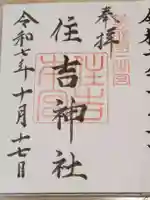 奉拝
住吉神社
令和七年十月十七日